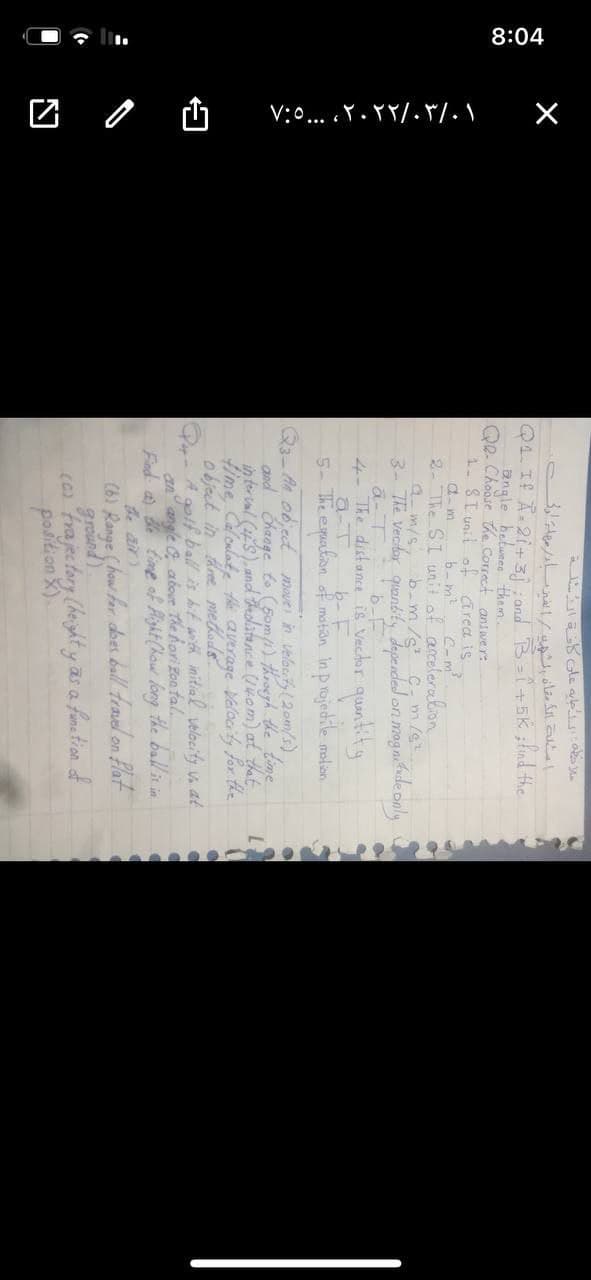 8:04
٢٠٢٢/٠٣/٠١، ...٧:٥
ملاحظة:
Q1. If A = 2î + 3ĵ ; and B = î + 5k̂ ; find the
angle between them.
Q2- Choose the correct answer:
1- SI unit of area is
a- m b- m² c- m³
2- The SI unit of acceleration
a- m/s b- m/s² c- m/s²
3- The vector quantity depended on magnitude only
a- T b- F
4- The distance is vector quantity
a- T b- F
5- The equation of motion in projectile motion
Q3- An object moves in velocity (20m/s)
and change to (50m/s) through the time
interval (4s), and the distance (140m) at that
time. Calculate the average velocity for the
object in three methods.
Q4- A golf ball is hit with initial velocity v₀ at
an angle θ₀ above the horizontal.
Find a) the time of flight (how long the ball is in
the air)
(b) Range (how far does ball travel on flat
ground)
(c) trajectory (height y as a function of
position x)